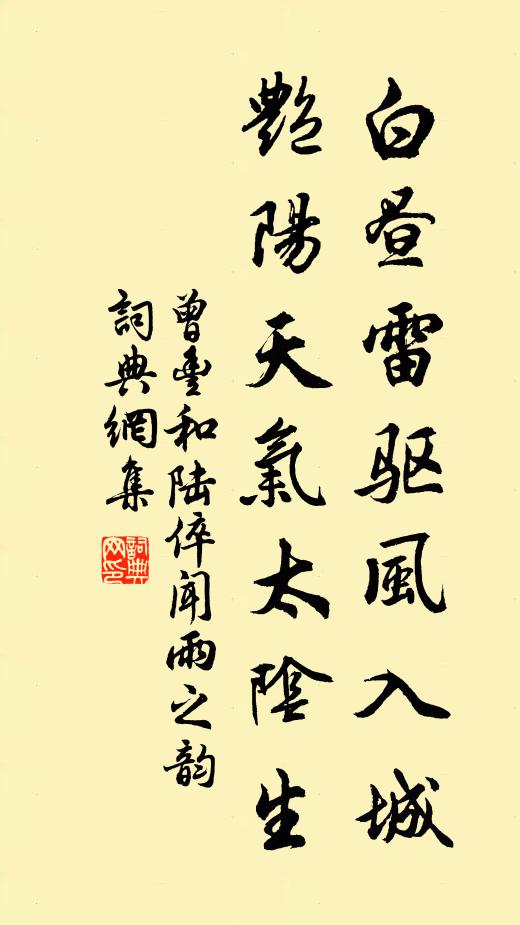 白昼雷驱風入城
艷陽天氣太陰生
曾豊和陆倅闻雨之韵
詞典網集
詞典网印